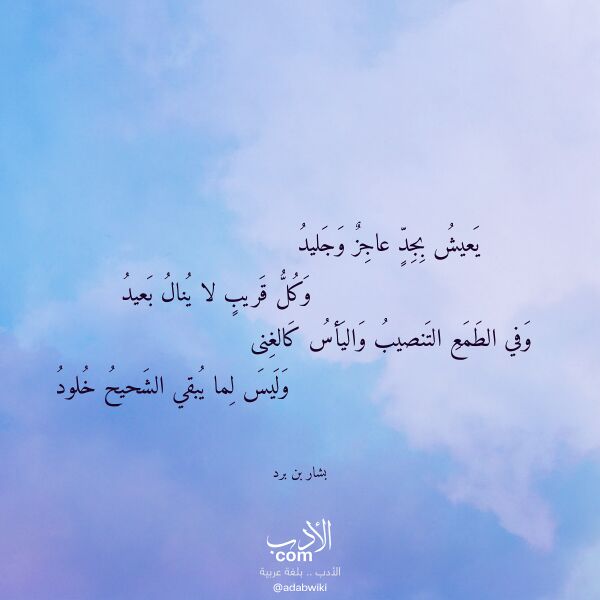 يَعيشُ بِجِدٍّ عاجِزٌ وَجَليدُ
وَكُلُّ قَريبٍ لا يُنالُ بَعيدُ
وَفي الطَمَعِ التَنصيبُ وَاليَأسُ كَالغِنى
وَلَيسَ لِما يُبقي الشَحيحُ خُلودُ
بشار بن برد
الأدب
com
الأدب .. بلغة عربية
@adabwiki